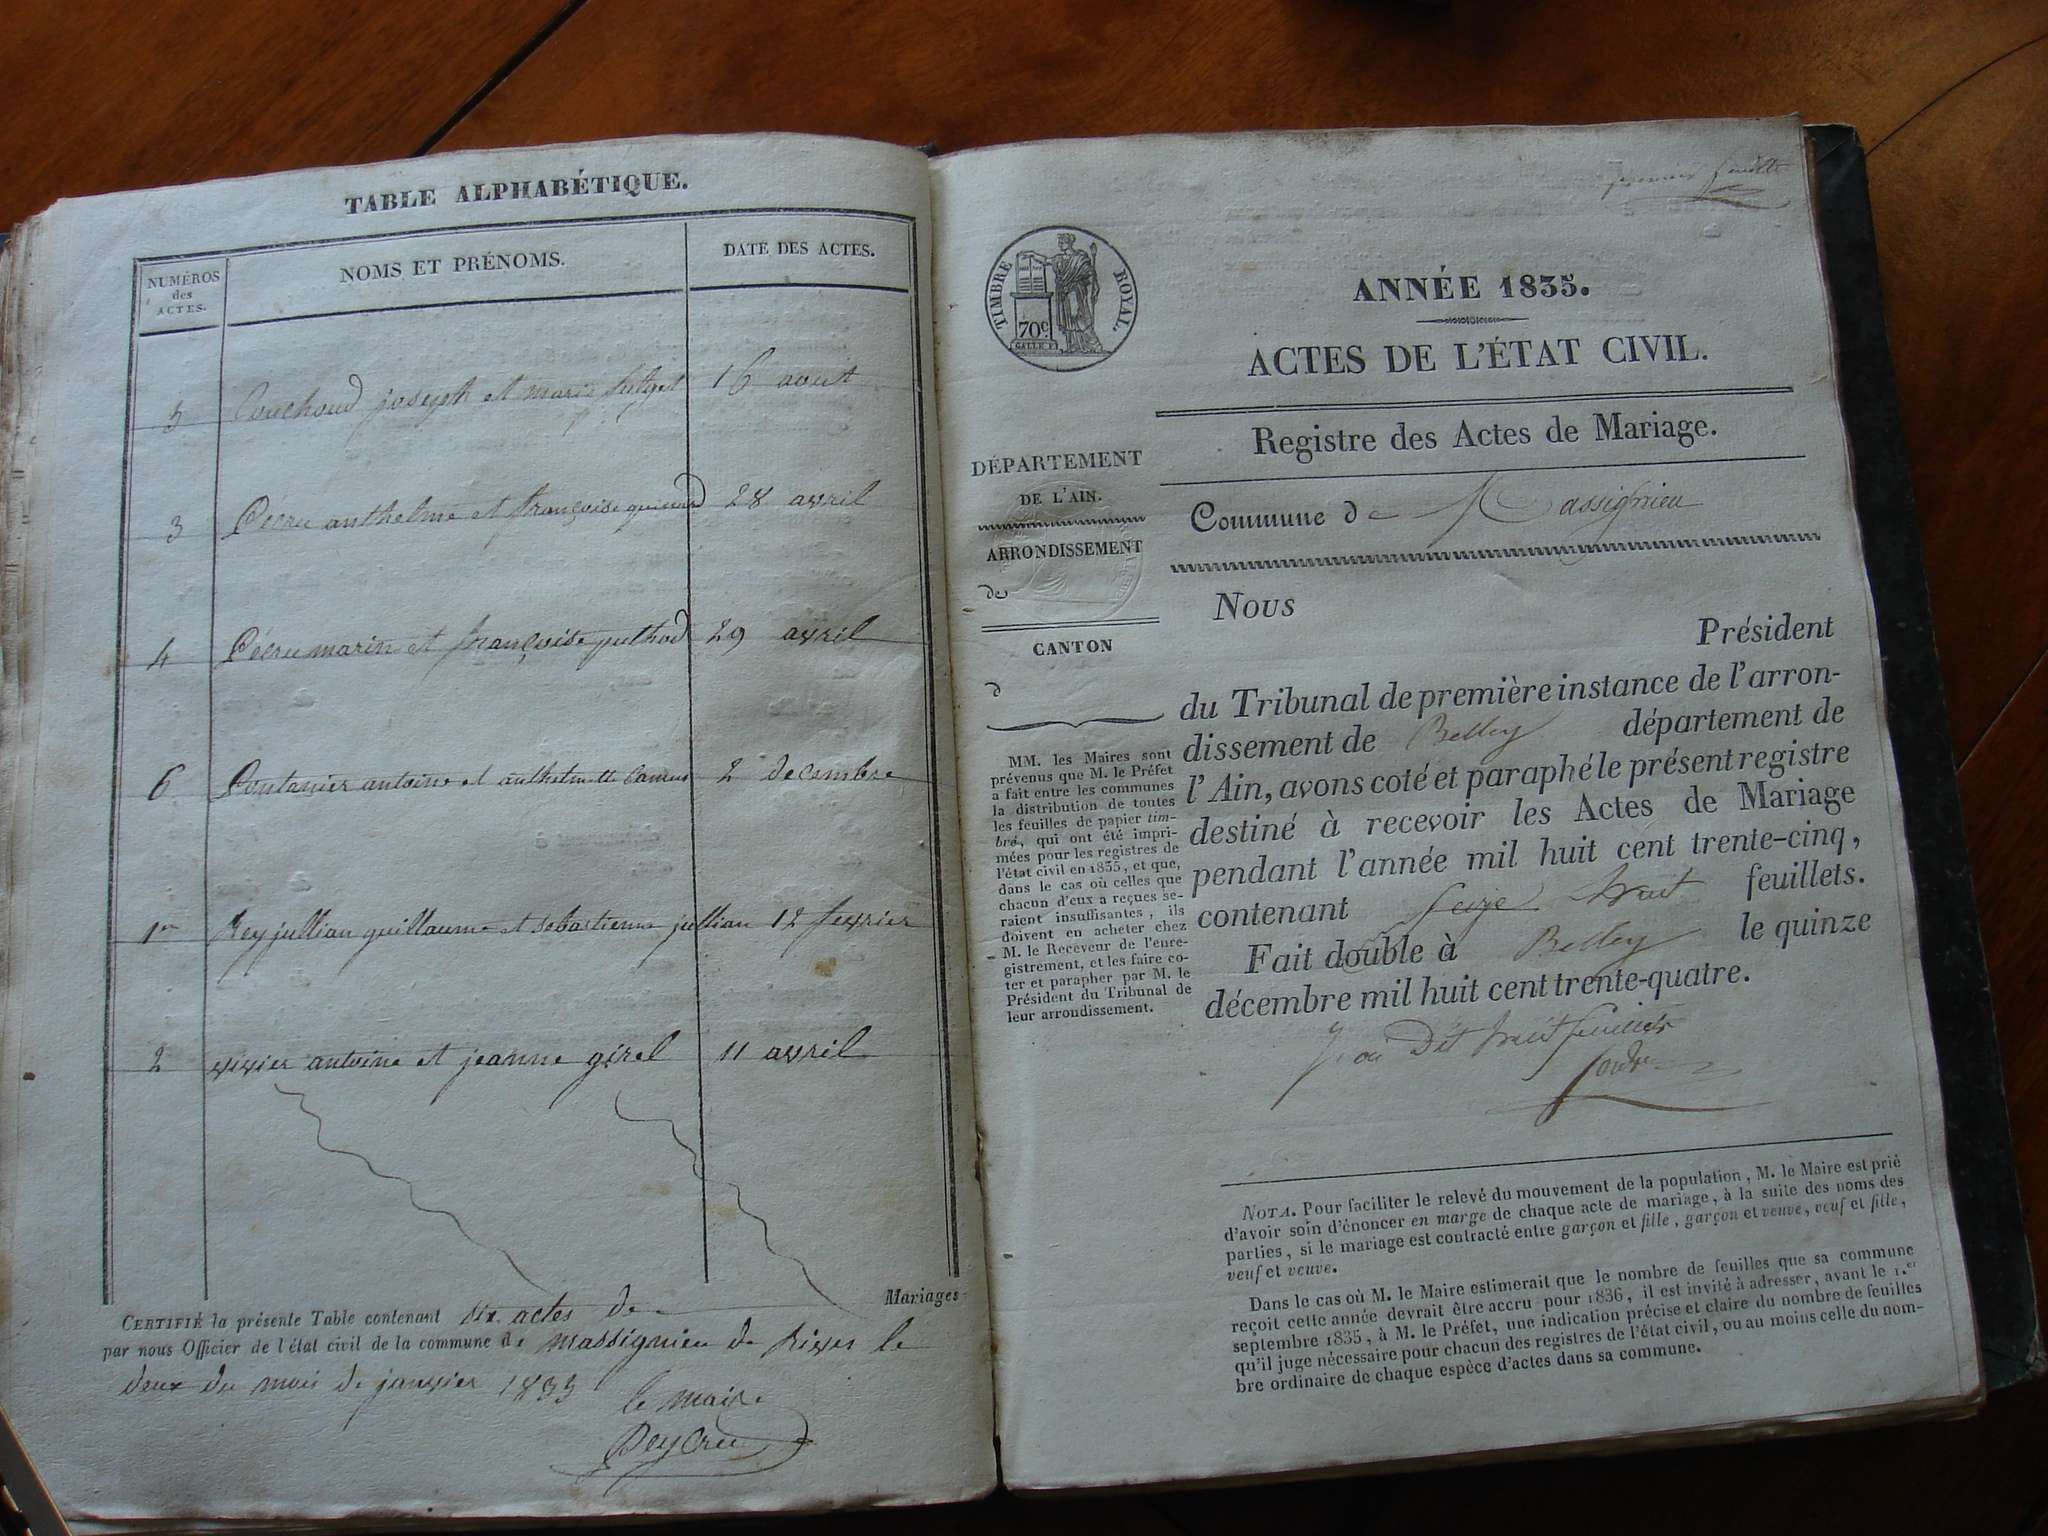 TABLE ALPHABÉTIQUE.
NUMÉROS des ACTES.
NOMS ET PRÉNOMS.
DATE DES ACTES.
5 Couchoud joseph et marie 16 aout
3 anthelme et françoise 28 avril
4 marin et françoise puthod 29 avril
6 antoine et anthelmette 2 decembre
1er Rey jullian guillaume et sebastienne jullian 12 fevrier
2 vivier antoine et jeanne girel 11 avril
CERTIFIÉ la présente Table contenant six actes de Mariages
par nous Officier de l'état civil de la commune de massignieu de Rives le
deux du mois de janvier 1835
le maire
premier feuillet
TIMBRE ROYAL.
70c
ANNÉE 1835.
ACTES DE L'ÉTAT CIVIL.
Registre des Actes de Mariage.
Commune de Massignieu
DÉPARTEMENT
DE L'AIN.
ARRONDISSEMENT
de
CANTON
d
MM. les Maires sont
prévenus que M. le Préfet
a fait entre les communes
la distribution de toutes
les feuilles de papier tim-
bré, qui ont été impri-
mées pour les registres de
l'état civil en 1835, et que,
dans le cas où celles que
chacun d'eux a reçues se-
raient insuffisantes, ils
doivent en acheter chez
M. le Receveur de l'enre-
gistrement, et les faire co-
ter et parapher par M. le
Président du Tribunal de
leur arrondissement.
Nous
Président
du Tribunal de première instance de l'arron-
dissement de Belley département de
l'Ain, avons coté et paraphé le présent registre
destiné à recevoir les Actes de Mariage
pendant l'année mil huit cent trente-cinq,
contenant seize huit feuillets.
Fait double à Belley le quinze
décembre mil huit cent trente-quatre.
J'ai Dit huit feuillets
NOTA. Pour faciliter le relevé du mouvement de la population, M. le Maire est prié
d'avoir soin d'énoncer en marge de chaque acte de mariage, à la suite des noms des
parties, si le mariage est contracté entre garçon et fille, garçon et veuve, veuf et fille,
veuf et veuve.
Dans le cas où M. le Maire estimerait que le nombre de feuilles que sa commune
reçoit cette année devrait être accru pour 1836, il est invité à adresser, avant le 1.er
septembre 1835, à M. le Préfet, une indication précise et claire du nombre de feuilles
qu'il juge nécessaire pour chacun des registres de l'état civil, ou au moins celle du nom-
bre ordinaire de chaque espèce d'actes dans sa commune.